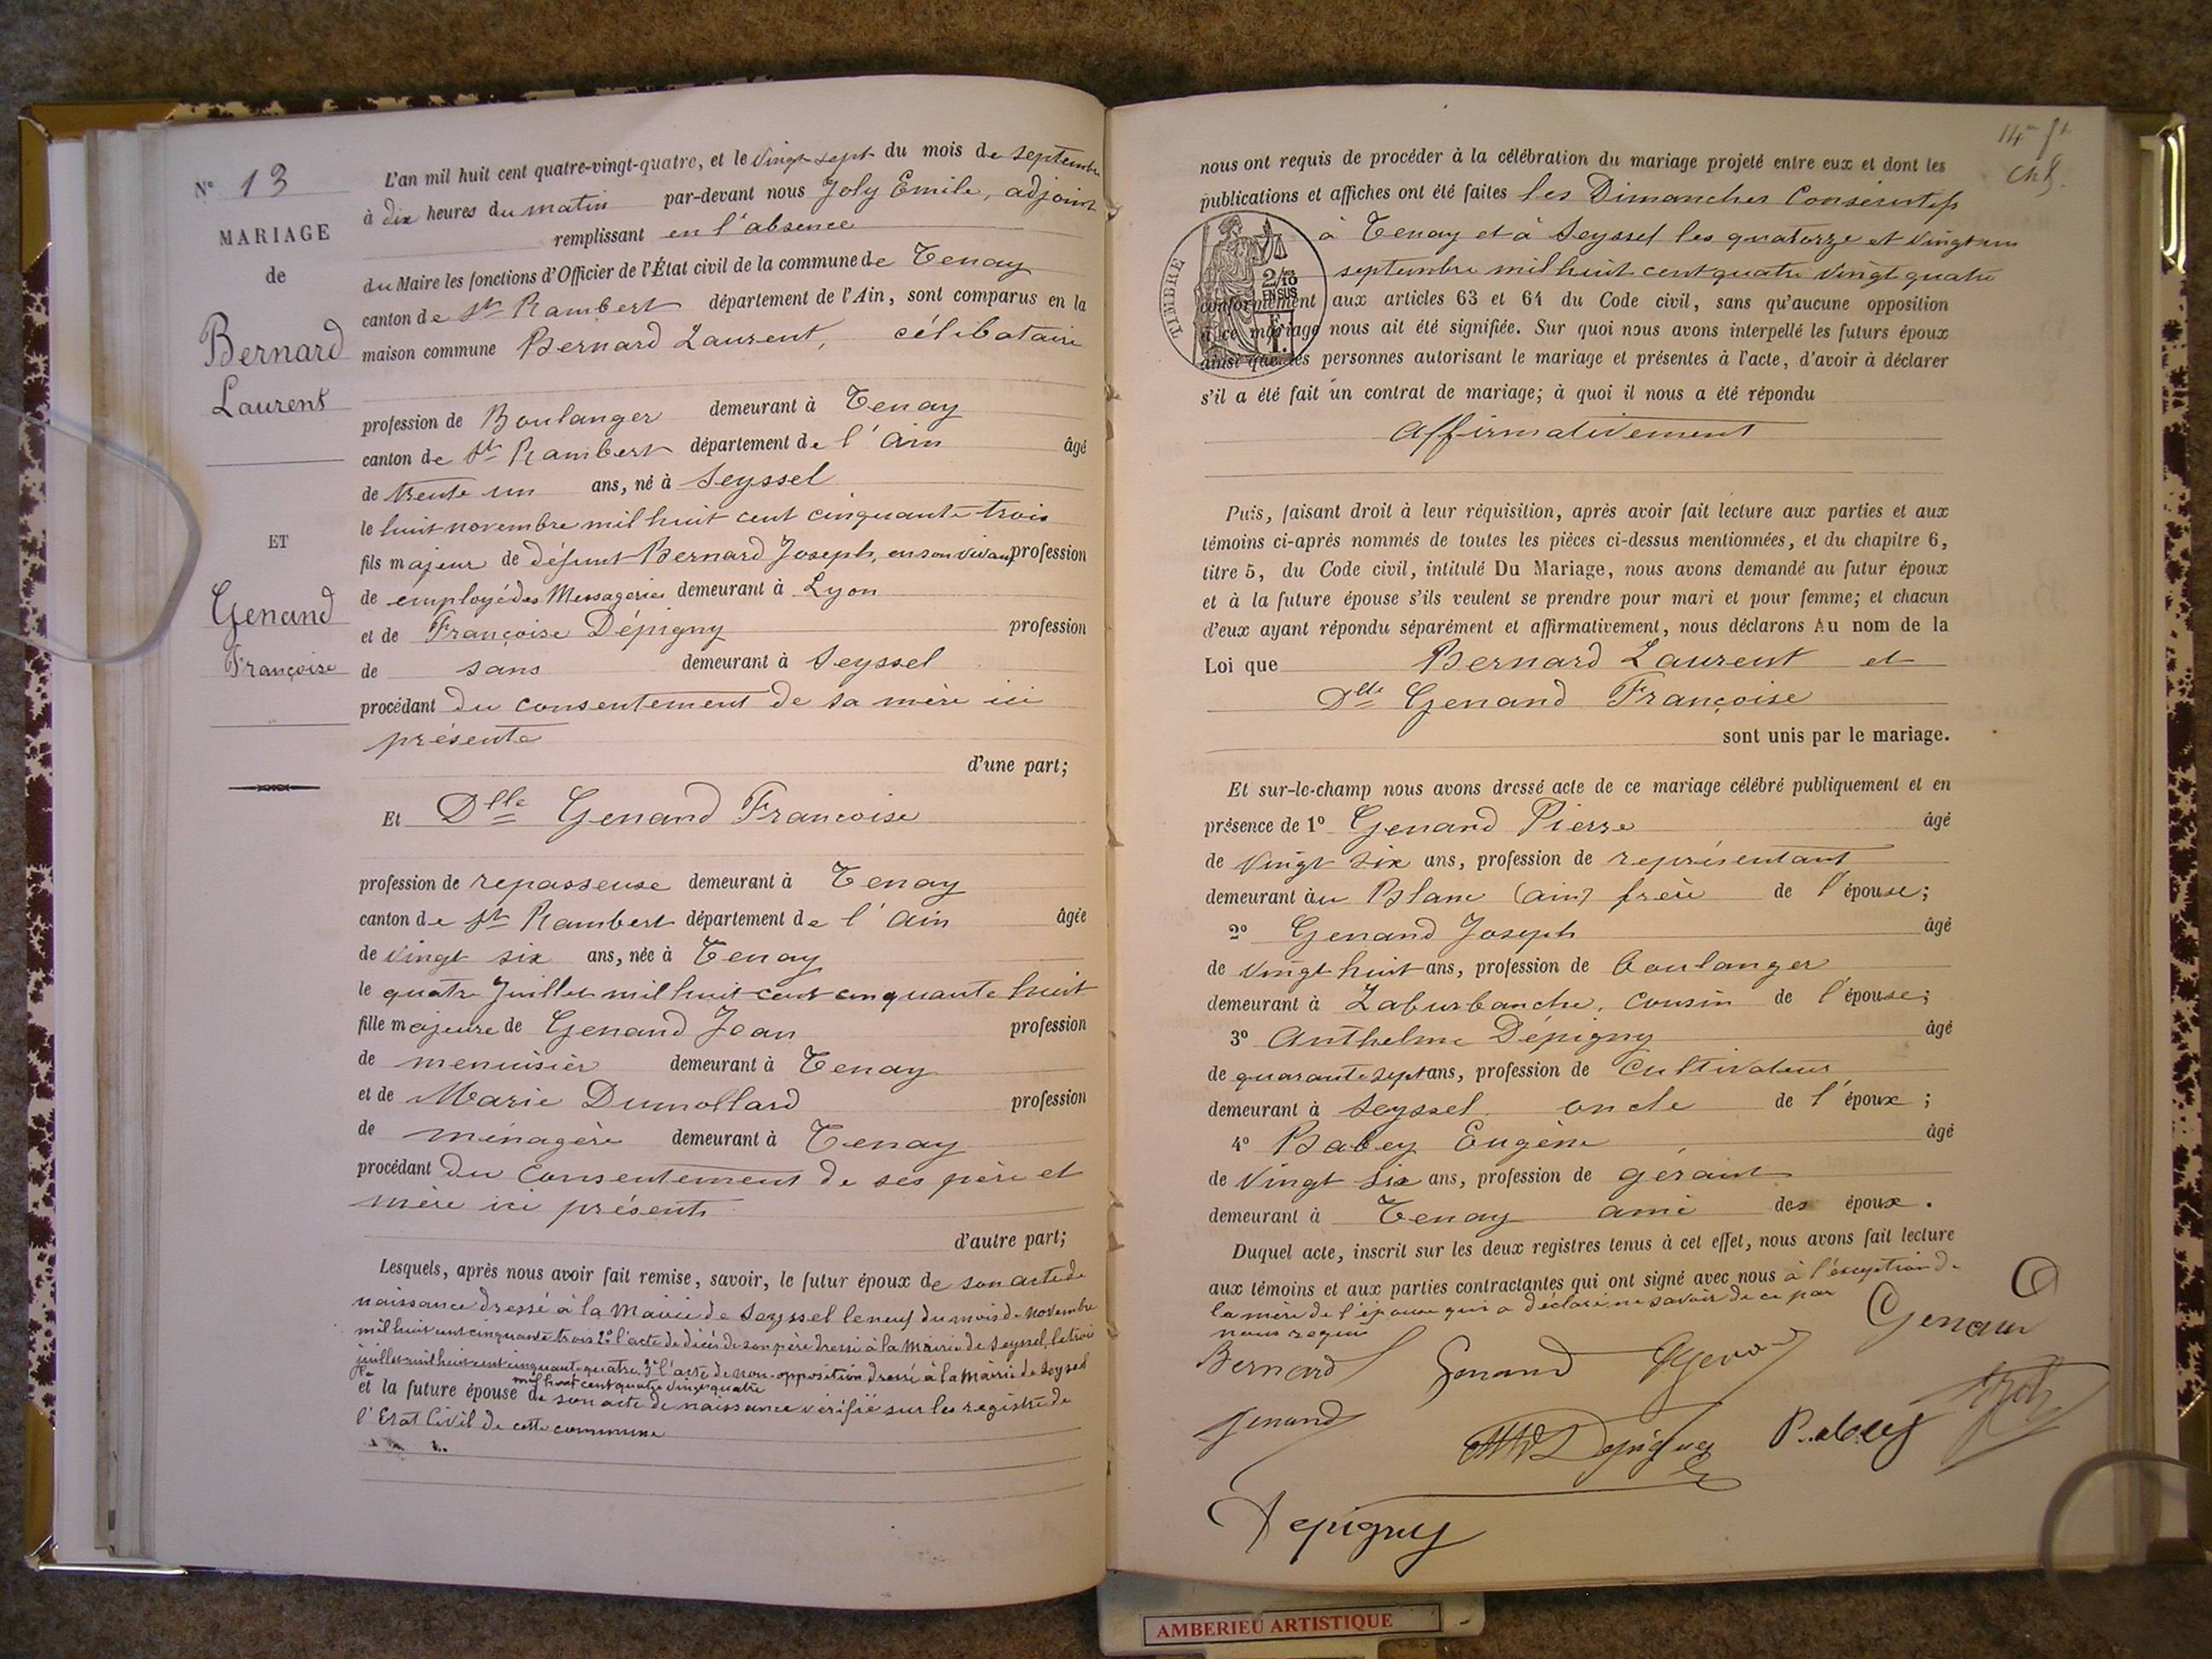 N° 13
MARIAGE
de
Bernard
Laurent
ET
Genand
Françoise
L'an mil huit cent quatre-vingt-quatre, et le vingt sept du mois de septembre
à dix heures du matin par-devant nous Joly Emile, adjoint
remplissant en l'absence
du Maire les fonctions d'Officier de l'État civil de la commune de Tenay
canton de St Rambert département de l'Ain, sont comparus en la
maison commune Bernard Laurent, célibataire
profession de Boulanger demeurant à Tenay
canton de St Rambert département de l'Ain âgé
de trente un ans, né à Seyssel
le huit novembre mil huit cent cinquante trois
fils majeur de défunt Bernard Joseph, en son vivant profession
de employé des Messageries demeurant à Lyon
et de Françoise Dépigny profession
de sans demeurant à Seyssel
procédant du consentement de sa mère ici
présente
d'une part;
Et Dlle Genand Françoise
profession de repasseuse demeurant à Tenay
canton de St Rambert département de l'Ain âgée
de vingt six ans, née à Tenay
le quatre Juillet mil huit cent cinquante huit
fille majeure de Genand Jean profession
de menuisier demeurant à Tenay
et de Marie Dumollard profession
de ménagère demeurant à Tenay
procédant du consentement de ses père et
mère ici présents
d'autre part;
Lesquels, après nous avoir fait remise, savoir, le futur époux de son acte de
naissance dressé à la Mairie de Seyssel le neuf du mois de novembre
mil huit cent cinquante trois 2° l'acte de décès de son père dressé à la Mairie de Seyssel, le trois
juillet mil huit cent cinquante quatre 3° l'acte de non-opposition dressé à la Mairie de Seyssel
mil huit cent quatre vingt quatre
et la future épouse de son acte de naissance vérifié sur les registre de
l'Etat Civil de cette commune
nous ont requis de procéder à la célébration du mariage projeté entre eux et dont les
publications et affiches ont été faites les Dimanches Consécutifs
à Tenay et à Seyssel les quatorze et vingt un
septembre mil huit cent quatre vingt quatre
conformément aux articles 63 et 64 du Code civil, sans qu'aucune opposition
à ce mariage nous ait été signifiée. Sur quoi nous avons interpellé les futurs époux
ainsi que les personnes autorisant le mariage et présentes à l'acte, d'avoir à déclarer
s'il a été fait un contrat de mariage; à quoi il nous a été répondu
TIMBRE
2/10
EN SUS
Affirmativement
Puis, faisant droit à leur réquisition, après avoir fait lecture aux parties et aux
témoins ci-après nommés de toutes les pièces ci-dessus mentionnées, et du chapitre 6,
titre 5, du Code civil, intitulé Du Mariage, nous avons demandé au futur époux
et à la future épouse s'ils veulent se prendre pour mari et pour femme; et chacun
d'eux ayant répondu séparément et affirmativement, nous déclarons Au nom de la
Loi que Bernard Laurent et
Dlle Genand Françoise
sont unis par le mariage.
Et sur-le-champ nous avons dressé acte de ce mariage célébré publiquement et en
présence de 1° Genand Pierre âgé
de vingt six ans, profession de représentant
demeurant au Blanc (ain) frère de l'épouse;
2° Genand Joseph âgé
de vingt huit ans, profession de boulanger
demeurant à Laburbanche, cousin de l'épouse;
3° Anthelme Dépigny âgé
de quarante sept ans, profession de Cultivateur
demeurant à Seyssel oncle de l'époux;
4° Babey Eugène âgé
de vingt six ans, profession de gérant
demeurant à Tenay ami des époux.
Duquel acte, inscrit sur les deux registres tenus à cet effet, nous avons fait lecture
aux témoins et aux parties contractantes qui ont signé avec nous à l'exception de
la mère de l'épouse qui a déclaré ne savoir de ce par
nous requis
Bernard Genand Genand
Genand Depigny Babey Joly
Depigny
AMBERIEU ARTISTIQUE